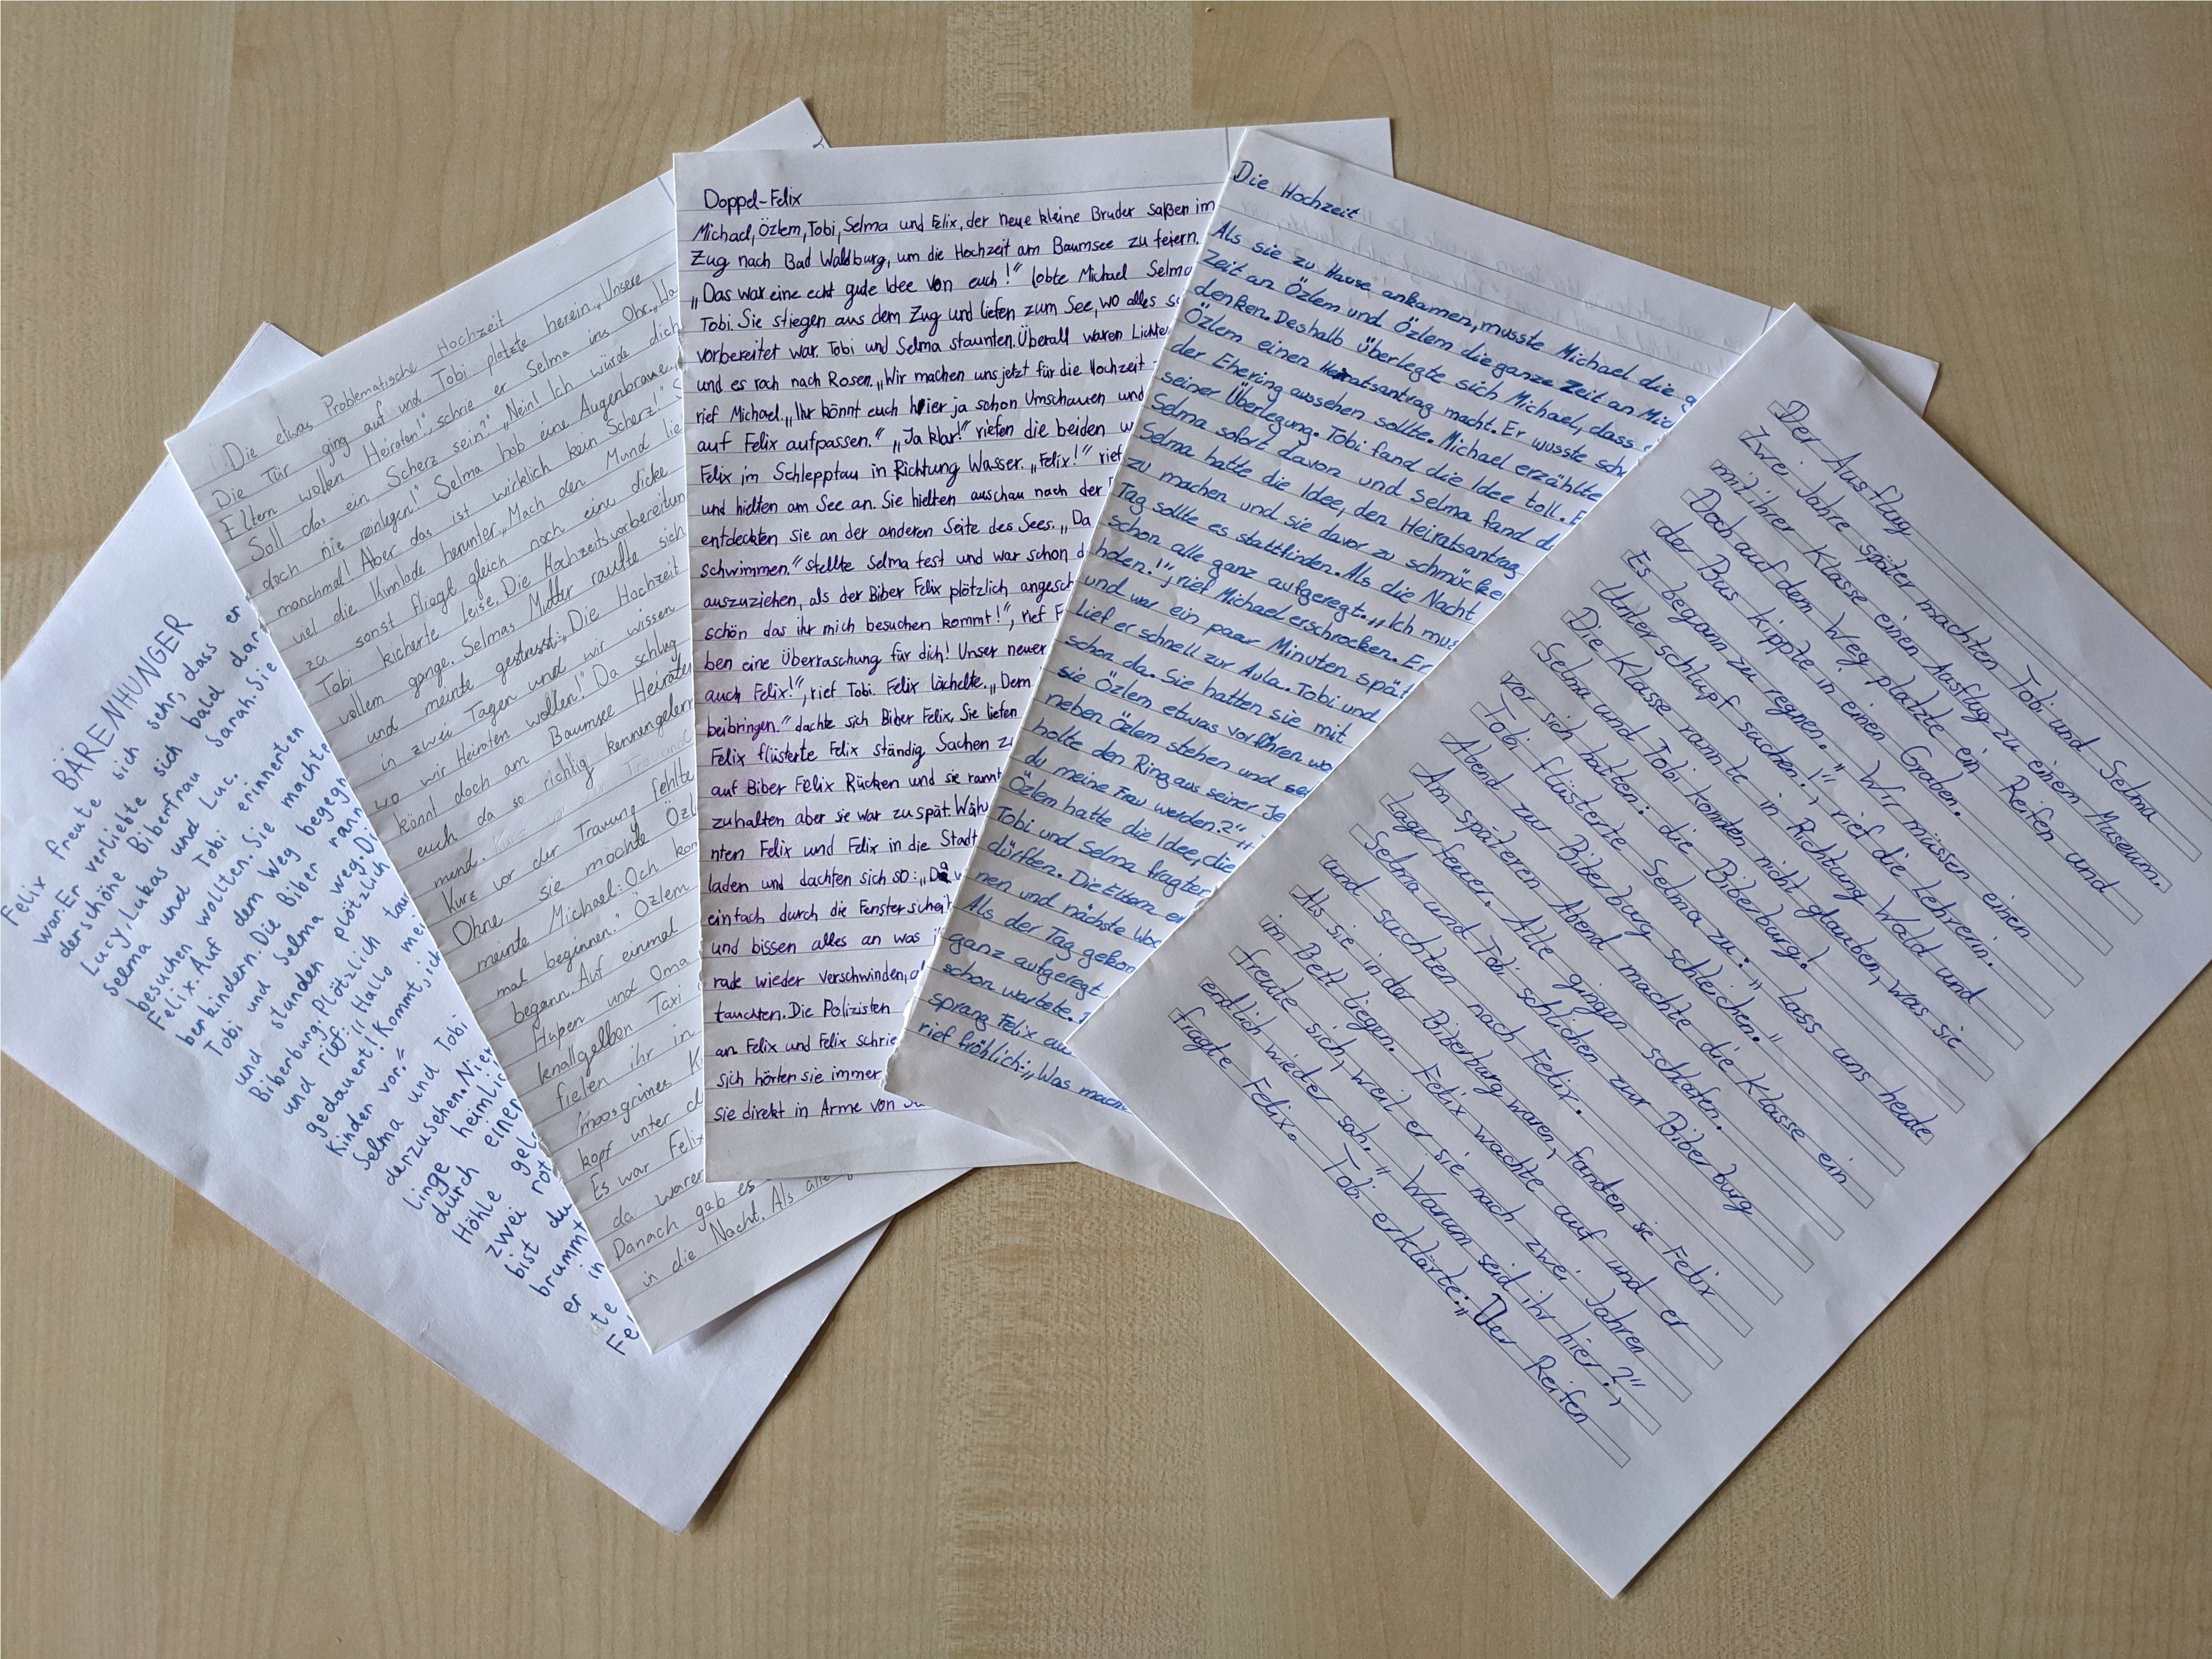 BÄRENHUNGER
Felix freute sich sehr, dass er
war. Er verliebte sich bald dar
der schöne Biberfrau Sarah. Sie
Lucy, Lukas und Luc.
Selma und Tobi erinnerten
besuchen wollten. Sie machte
Felix. Auf dem Weg begegn
berkindern. Die Biber rann
Tobi und Selma weg. Di
und standen plötzlich
Biberburg. Plötzlich
und rief: "Hallo mei
gedauert! Kommt, ich
Kinder vor."
Selma und Tobi
derzusehen.
linge heimlic
durch einen
Höhle
zwei rot
bist du
brummt
er in
Die etwas Problematische Hochzeit
Die Tür ging auf und Tobi platzte herein. „Unsere
Eltern wollen Heiraten!", schrie er Selma ins Ohr. „Wa
Soll das ein Scherz sein?" „Nein! Ich würde dich
doch nie reinlegen!" Selma hob eine Augenbraue. „
manchmal! Aber das ist wirklich kein Scherz!" S
viel die Kinnlade herunter. „Mach den Mund lie
zu sonst fliegt gleich noch eine dicke
Tobi kicherte leise. Die Hochzeitsvorbereitun
vollem gange. Selmas Mutter raufte sich
und meinte gestresst: „Die Hochzeit
in zwei Tagen und wir wissen
wo wir Heiraten wollen!" Da schlug
könnt doch am Baumsee Heiraten
euch da so richtig kennengelern
mend.
Kurz vor der Trauung fehlte
Ohne sie mochte Özl
meinte Michael: „Och kom
mal beginnen." Özlem
begann. Auf einmal
Hupen und Oma
knallgelben Taxi
fielen ihr in
moosgrünes K
kopf unter d
Es war Felix
da waren
Danach gab es
in die Nacht. Als alle
Doppel-Felix
Michael, Özlem, Tobi, Selma und Felix, der neue kleine Bruder saßen im
Zug nach Bad Waldburg, um die Hochzeit am Baumsee zu feiern.
„Das war eine echt gute Idee von euch!" lobte Michael Selma
Tobi. Sie stiegen aus dem Zug und liefen zum See, wo alles s
vorbereitet war. Tobi und Selma staunten. Überall waren Lichte
und es roch nach Rosen. „Wir machen uns jetzt für die Hochzeit
rief Michael. „Ihr könnt euch hier ja schon Umschauen und
auf Felix aufpassen." „Ja klar!" riefen die beiden u
Felix im Schlepptau in Richtung Wasser. „Felix!" rief
und hielten am See an. Sie hielten auschau nach der
entdeckten sie an der anderen Seite des Sees. „Da
schwimmen." stellte Selma fest und war schon d
auszuziehen, als der Biber Felix plötzlich angesch
schön das ihr mich besuchen kommt!", rief F
ben eine Überraschung für dich! Unser neuer
auch Felix!", rief Tobi. Felix lächelte. „Dem
beibringen." dachte sich Biber Felix. Sie liefen
Felix flüsterte Felix ständig Sachen zu
auf Biber Felix Rücken und sie rannt
zuhalten aber sie war zu spät. Währ
nten Felix und Felix in die Stadt
laden und dachten sich so: „Da
einfach durch die Fensterscheib
und bissen alles an was i
rade wieder verschwinden, a
tauchten. Die Polizisten
an. Felix und Felix schrie
sich hörten sie immer
sie direkt in Arme von
Die Hochzeit
Als sie zu Hause ankamen, musste Michael die g
Zeit an Özlem und Özlem die ganze Zeit an Mic
denken. Deshalb überlegte sich Michael, dass
Özlem einen Heiratsantrag macht. Er wusste sch
der Ehering aussehen sollte. Michael erzählte
seiner Überlegung. Tobi fand die Idee toll. E
Selma sofort davon und Selma fand d
Selma hatte die Idee, den Heiratsantrag
zu machen und sie davor zu schmücke
Tag sollte es stattfinden. Als die Nacht
schon alle ganz aufgeregt. „Ich mus
holen!", rief Michael erschrocken. Er
und war ein paar Minuten spät
lief er schnell zur Aula. Tobi und
schon da. Sie hatten sie mit
sie Özlem etwas vorführen wo
neben Özlem stehen und
holte den Ring aus seiner Je
du meine Frau werden?"
Özlem hatte die Idee, die
Tobi und Selma fragten
dürften. Die Eltern er
nen und nächste Woc
Als der Tag gekom
ganz aufgeregt
schon wartete.
sprang Felix au
rief fröhlich: „Was mach
Der Ausflug
Zwei Jahre später machten Tobi und Selma
mit ihrer Klasse einen Ausflug zu einem Museum.
Doch auf dem Weg platzte ein Reifen und
der Bus kippte in einen Graben.
Es begann zu regnen. „Wir müssen einen
Unterschlupf suchen!", rief die Lehrerin.
Die Klasse rannte in Richtung Wald und
Selma und Tobi konnten nicht glauben, was sie
vor sich hatten: die Biberburg!
Tobi flüsterte Selma zu: „Lass uns heute
Abend zur Biberburg schleichen."
Am späteren Abend machte die Klasse ein
Lagerfeuer. Alle gingen schlafen.
Selma und Tobi schlichen zur Biberburg
und suchten nach Felix.
Als sie in der Biberburg waren, fanden sie Felix
im Bett liegen. Felix wachte auf und er
freute sich, weil er sie nach zwei Jahren
endlich wieder sah. „Warum seid ihr hier?",
fragte Felix. Tobi erklärte: „Der Reifen